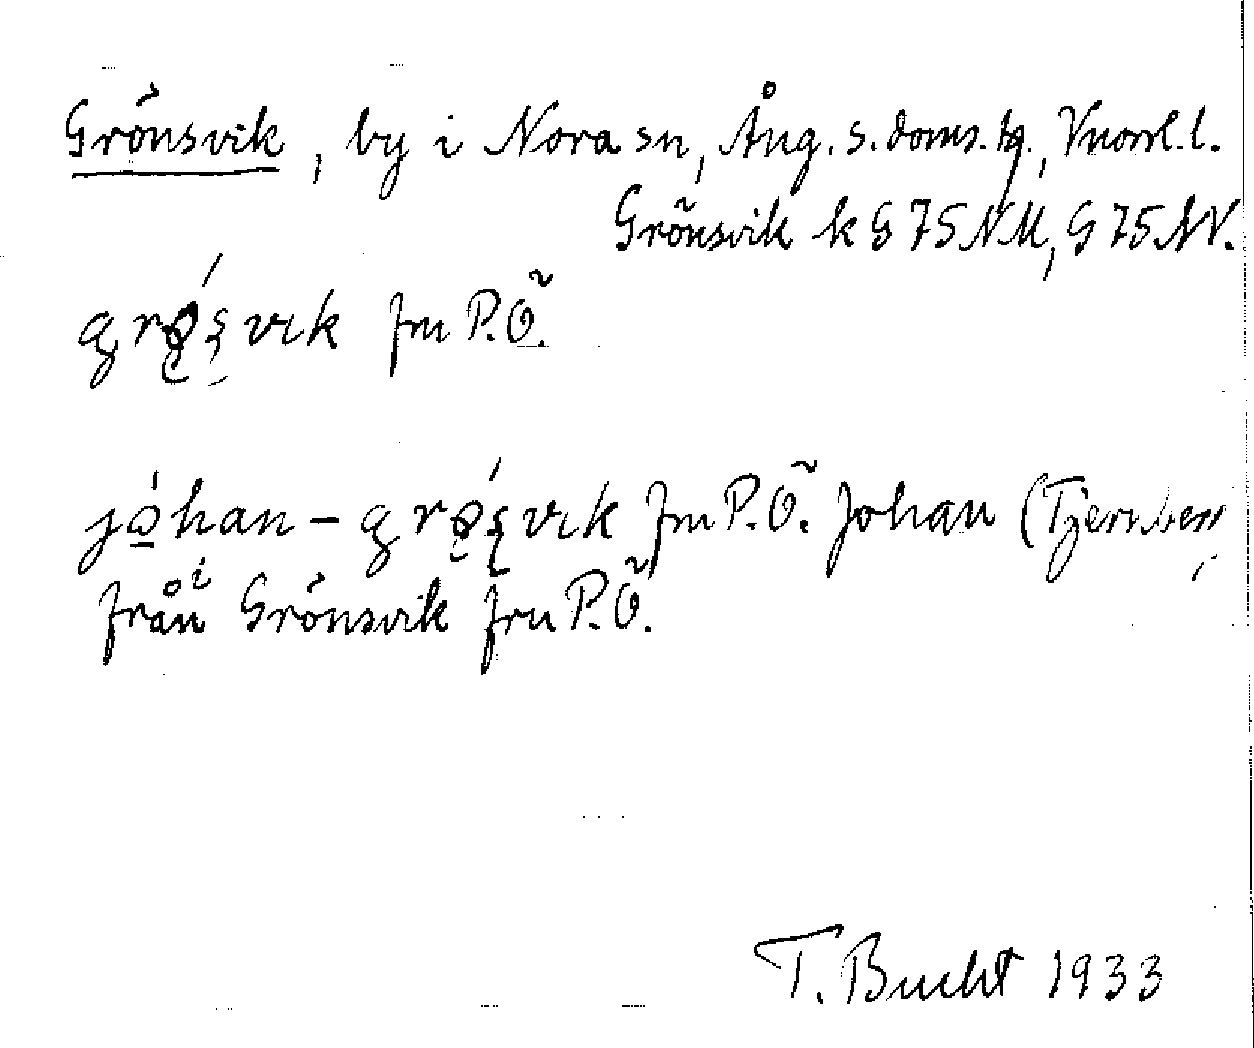 Grönsvik, by i Nora sn, Ång. s. doms. tg., Vnorrl. l.
Grönsvik k G 75 NM, G 75 NV.
grǫ́svik fm P.Ö.
jóhan-grǫ́svik fm P.Ö. Johan (Tjernberg
från i Grönsvik fm P.Ö.
T. Bucht 1933